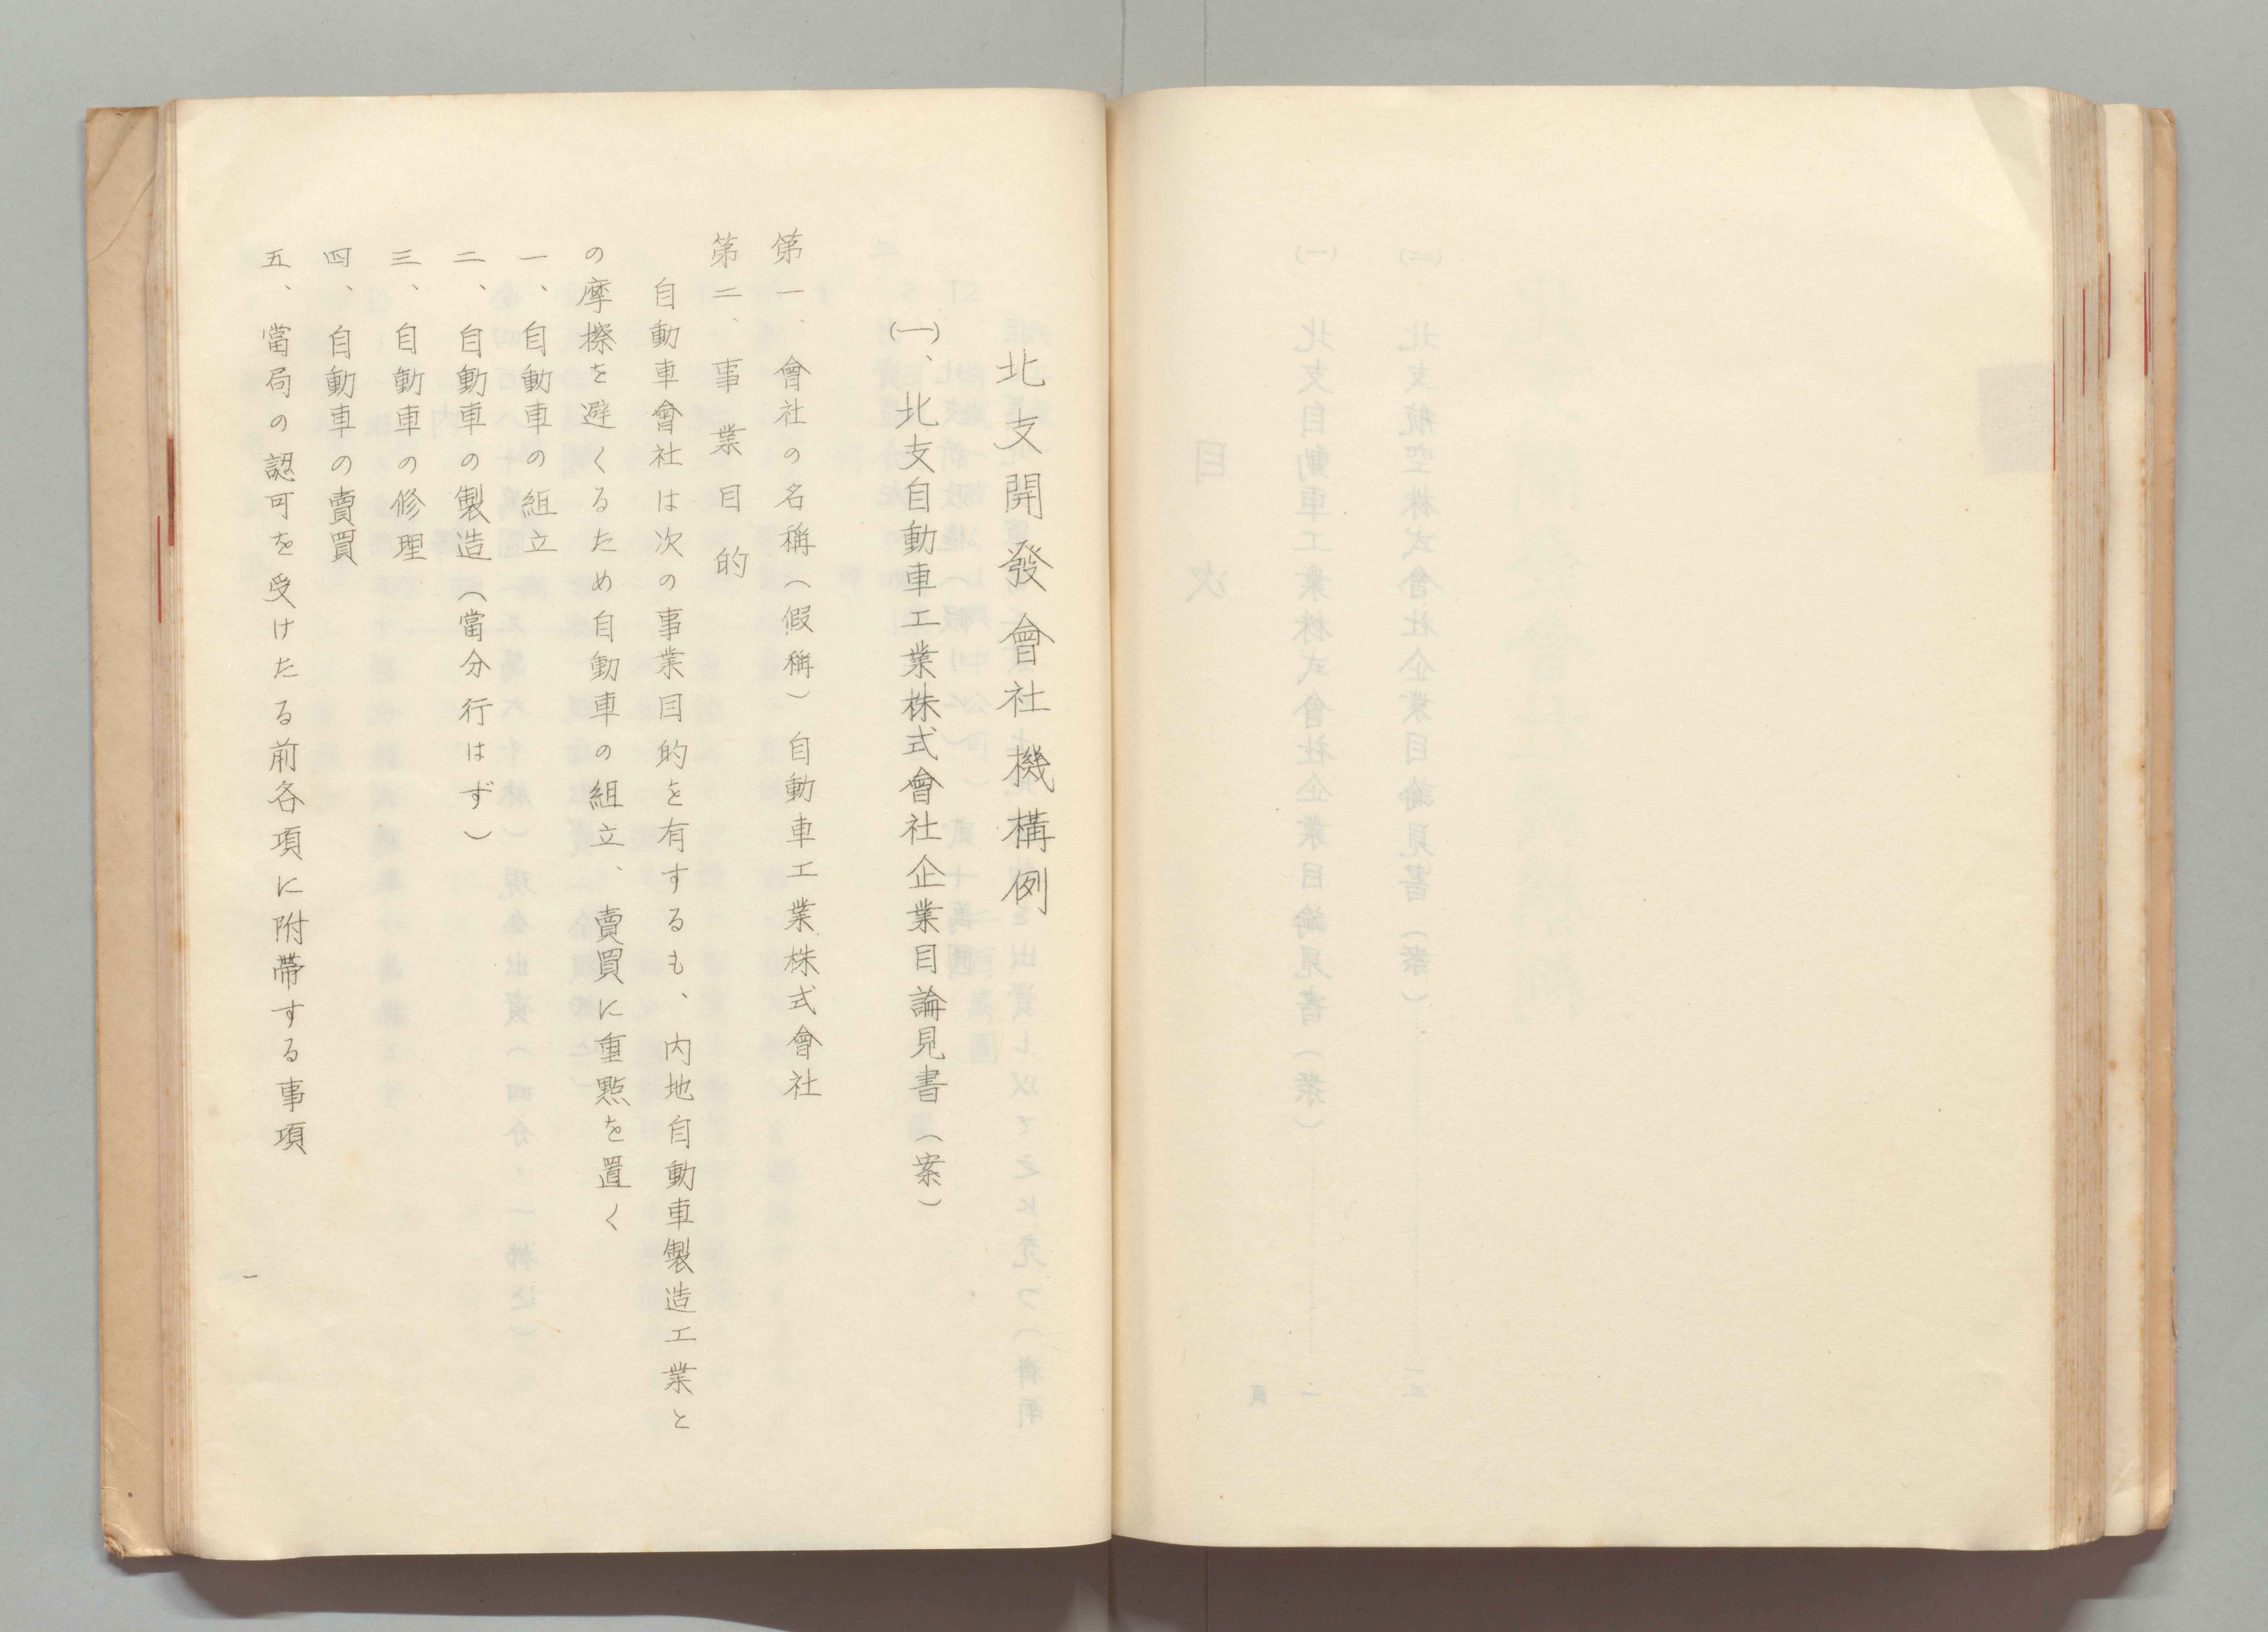 北支開發會社機構例
(一)、北支自動車工業株式會社企業目論見書（案）
第一、會社の名稱（假稱）自動車工業株式會社
第二、事業目的
自動車會社は次の事業目的を有するも、内地自動車製造工業と
の摩擦を避くるため自動車の組立、賣買に重點を置く
一、自動車の組立
二、自動車の製造（當分行はず）
三、自動車の修理
四、自動車の賣買
五、當局の認可を受けたる前各項に附帶する事項
一